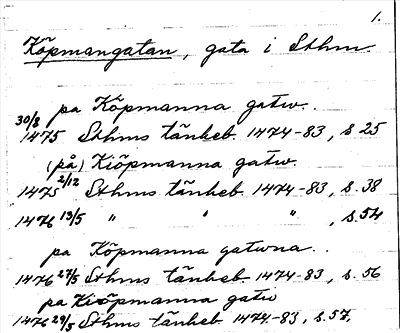 1.
Köpmangatan, gata i Sthm.
pa Köpmanna gatw..
30/8 1475 Sthms tänkeb. 1474-83, s 25
(på) Kiöpmanna gatw.
1475 2/12 Sthms tänkeb. 1474-83, s. 38
1476 13/5 " " " , s. 54
pa Köpmanna gatwna..
1476 27/5 Sthms tänkeb. 1474-83, s. 56
pa Kiöpmanna gatw
1476 29/5 Sthms tänkeb. 1474-83, s. 57.